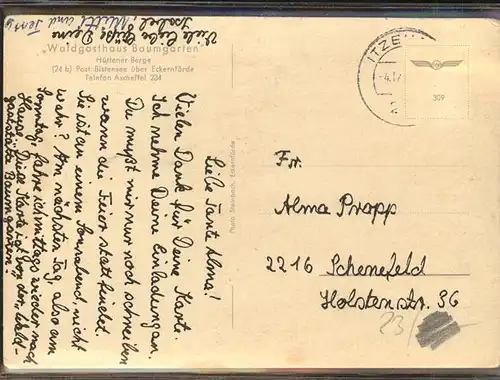 "Waldgasthaus Baumgarten"
Hüttener-Berge
(24 b) Post Bistensee über Eckernförde
Telefon Ascheffel 234
Photo Steinbach, Eckernförde
Liebe Tante Alma!
Vielen Dank für Deine Karte.
Ich nehme Deine Einladung an.
Du mußt mir nur noch schreiben
wann die Feier stattfindet.
Sie ist an einem Sonnabend nicht
wahr? Am nächsten Tag, also am
Sonntag, fahre ich mittags wieder nach
Hause. Diese Karte ist von der Wald-
gaststätte Baumgarten!
Viele liebe Grüße Deine
Isabel, Mutti und
ITZE
-4.12
309
Fr.
Alma Propp
2216 Schenefeld
Holstenstr. 96
23/